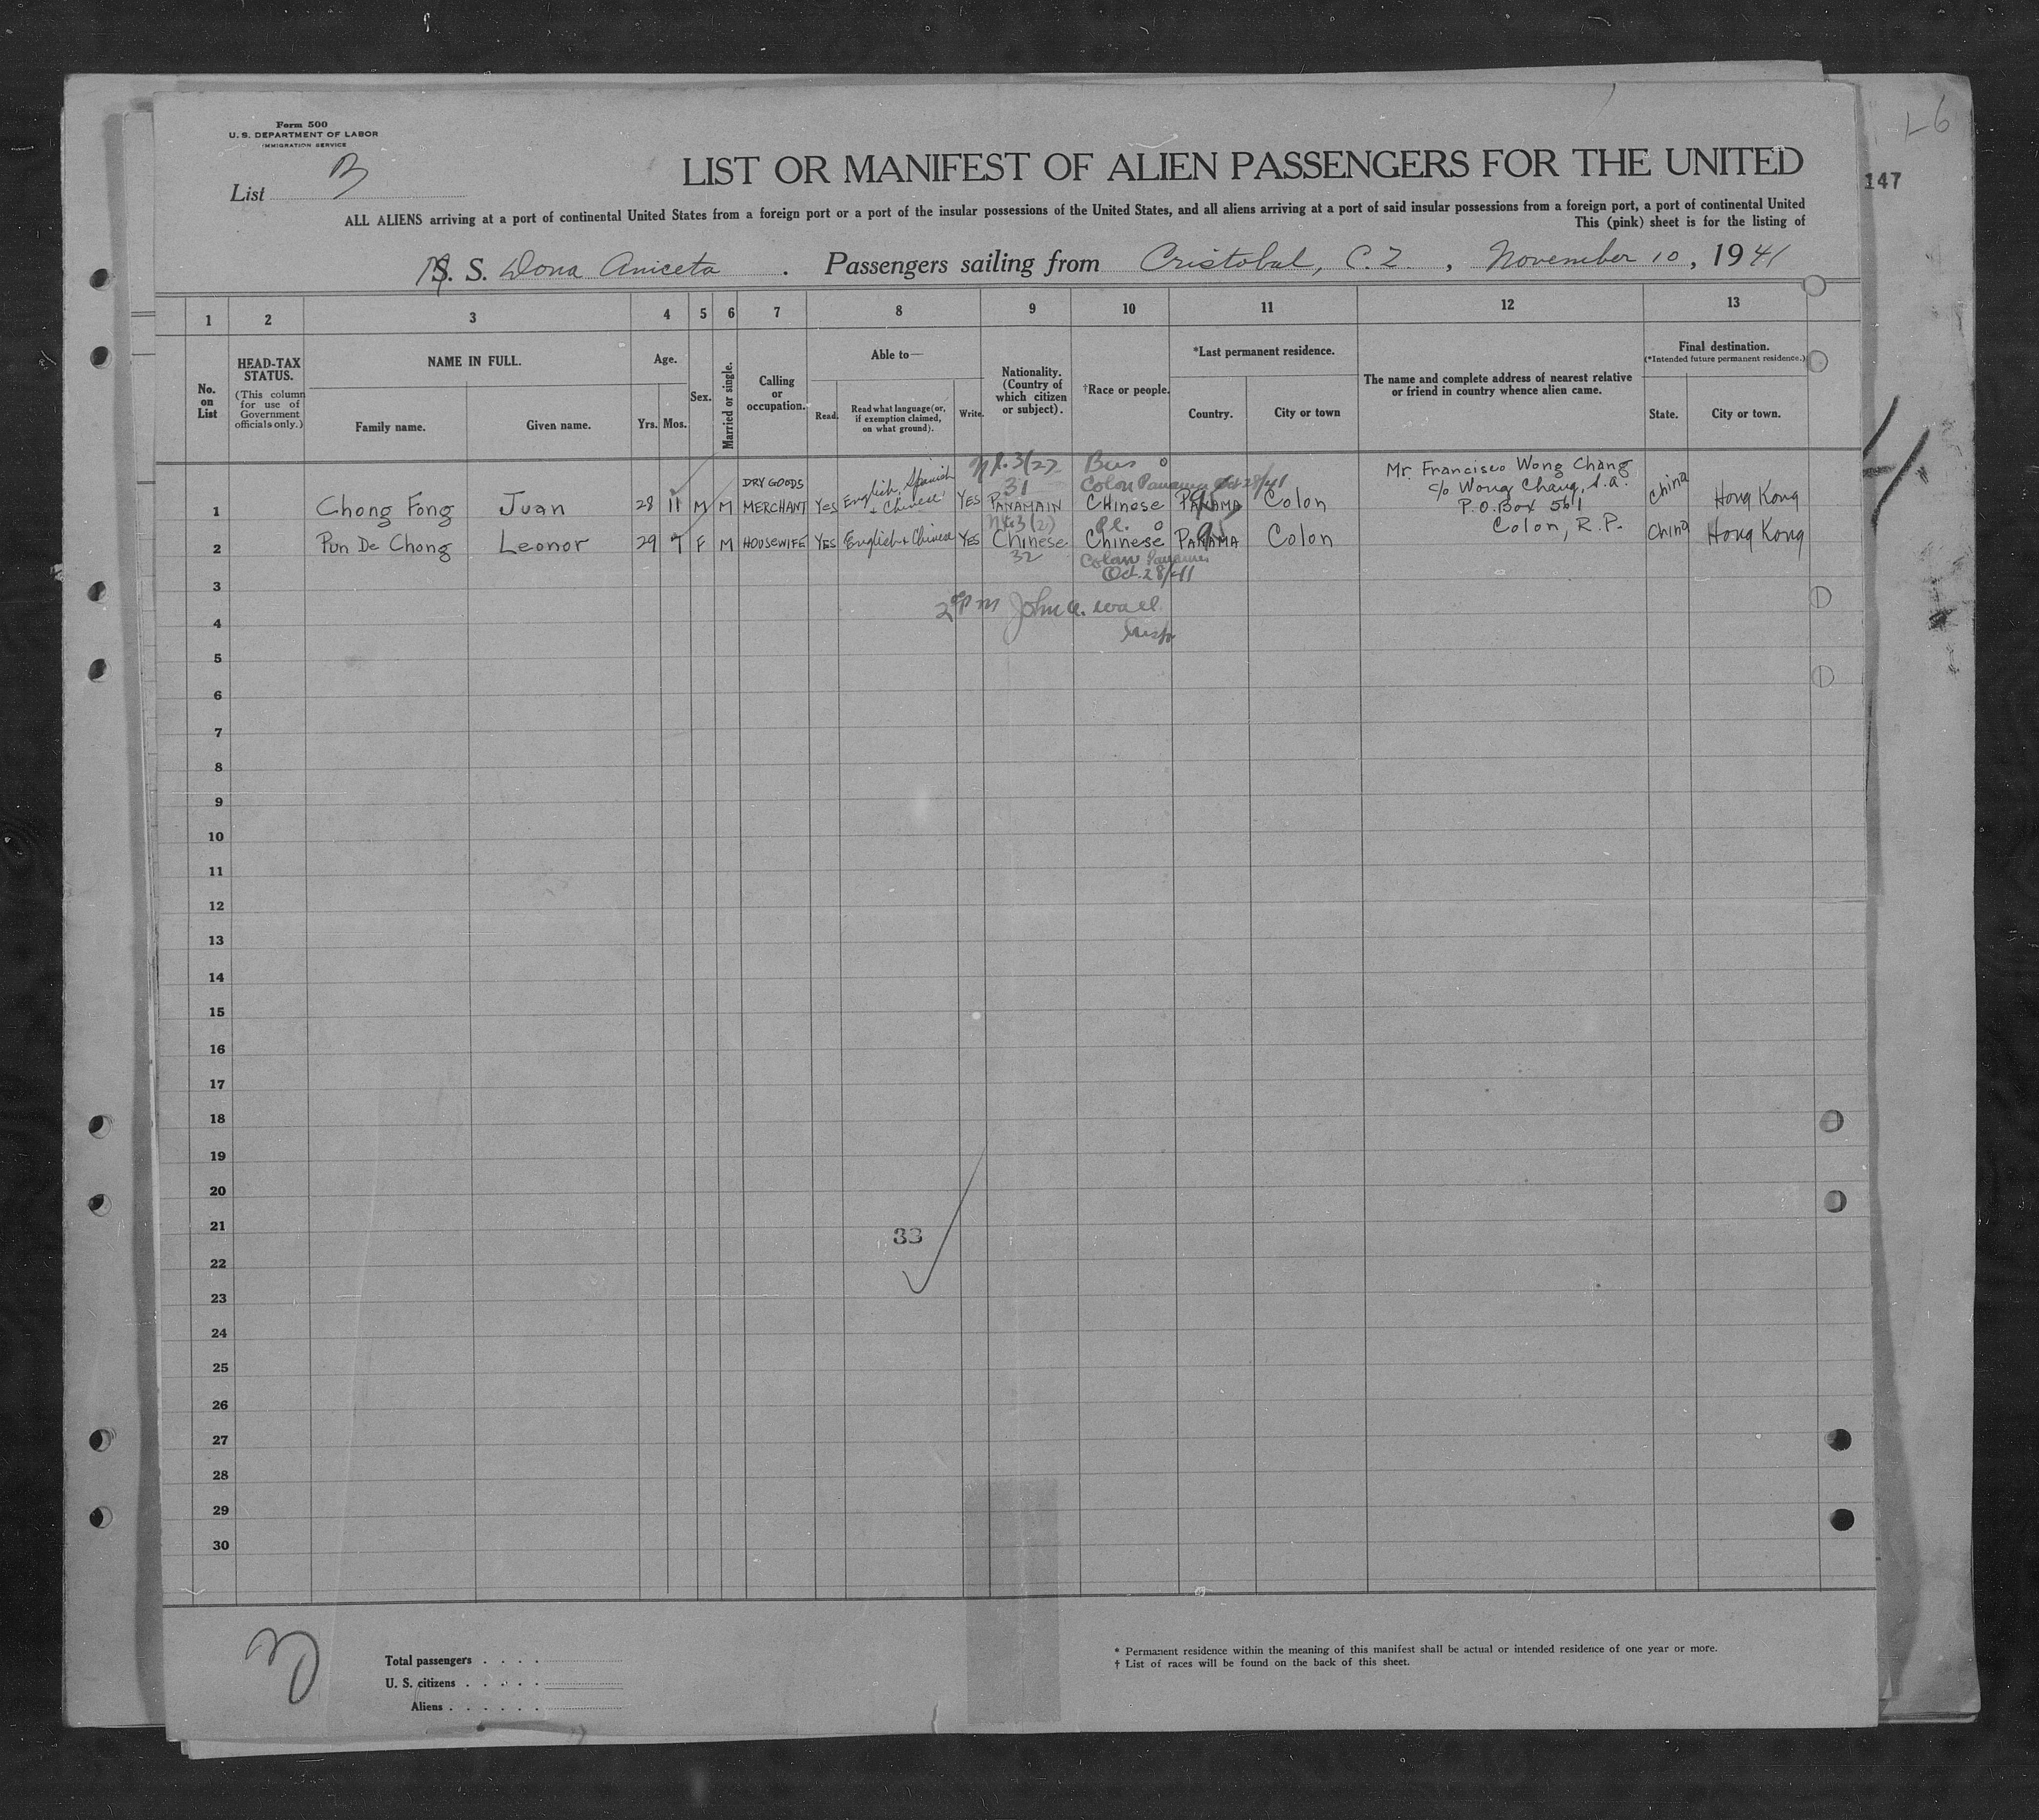 Form 500
U. S. DEPARTMENT OF LABOR
IMMIGRATION SERVICE
L6
147
LIST OR MANIFEST OF ALIEN PASSENGERS FOR THE UNITED
List B
ALL ALIENS arriving at a port of continental United States from a foreign port or a port of the insular possessions of the United States, and all aliens arriving at a port of said insular possessions from a foreign port, a port of continental United
This (pink) sheet is for the listing of
M. S. Dona Aniceta . Passengers sailing from Cristobal, C.Z. , November 10 , 1941
1 2 3 4 5 6 7 8 9 10 11 12 13
No. on List
HEAD-TAX STATUS.
(This column for use of Government officials only.)
NAME IN FULL.
Family name. Given name.
Age.
Yrs. Mos.
Sex.
Married or single.
Calling or occupation.
Able to—
Read. Read what language (or, if exemption claimed, on what ground). Write.
Nationality. (Country of which citizen or subject).
†Race or people.
*Last permanent residence.
Country. City or town
The name and complete address of nearest relative or friend in country whence alien came.
Final destination.
(*Intended future permanent residence.)
State. City or town.
3(2) Bus 0
31 Colon Panama Oct 28/41
1 Chong Fong Juan 28 11 M M DRY GOODS MERCHANT Yes English, Spanish + Chinese YES PANAMAIN CHinese PANAMA Colon Mr. Francisco Wong Chang c/o Wong Chang, S.A. P.O. Box 561 Colon, R.P. China Hong Kong
3(2) 0
2 Pun De Chong Leonor 29 7 F M HOUSEWIFE YES English + Chinese YES Chinese Chinese PANAMA Colon China Hong Kong
32 Colon Panama
Oct. 28/41
3
2 PM John A. Wall
4
Insp
5
6
7
8
9
10
11
12
13
14
15
16
17
18
19
20
21
33
22
23
24
25
26
27
28
29
30
Total passengers
U. S. citizens
Aliens
* Permanent residence within the meaning of this manifest shall be actual or intended residence of one year or more.
† List of races will be found on the back of this sheet.